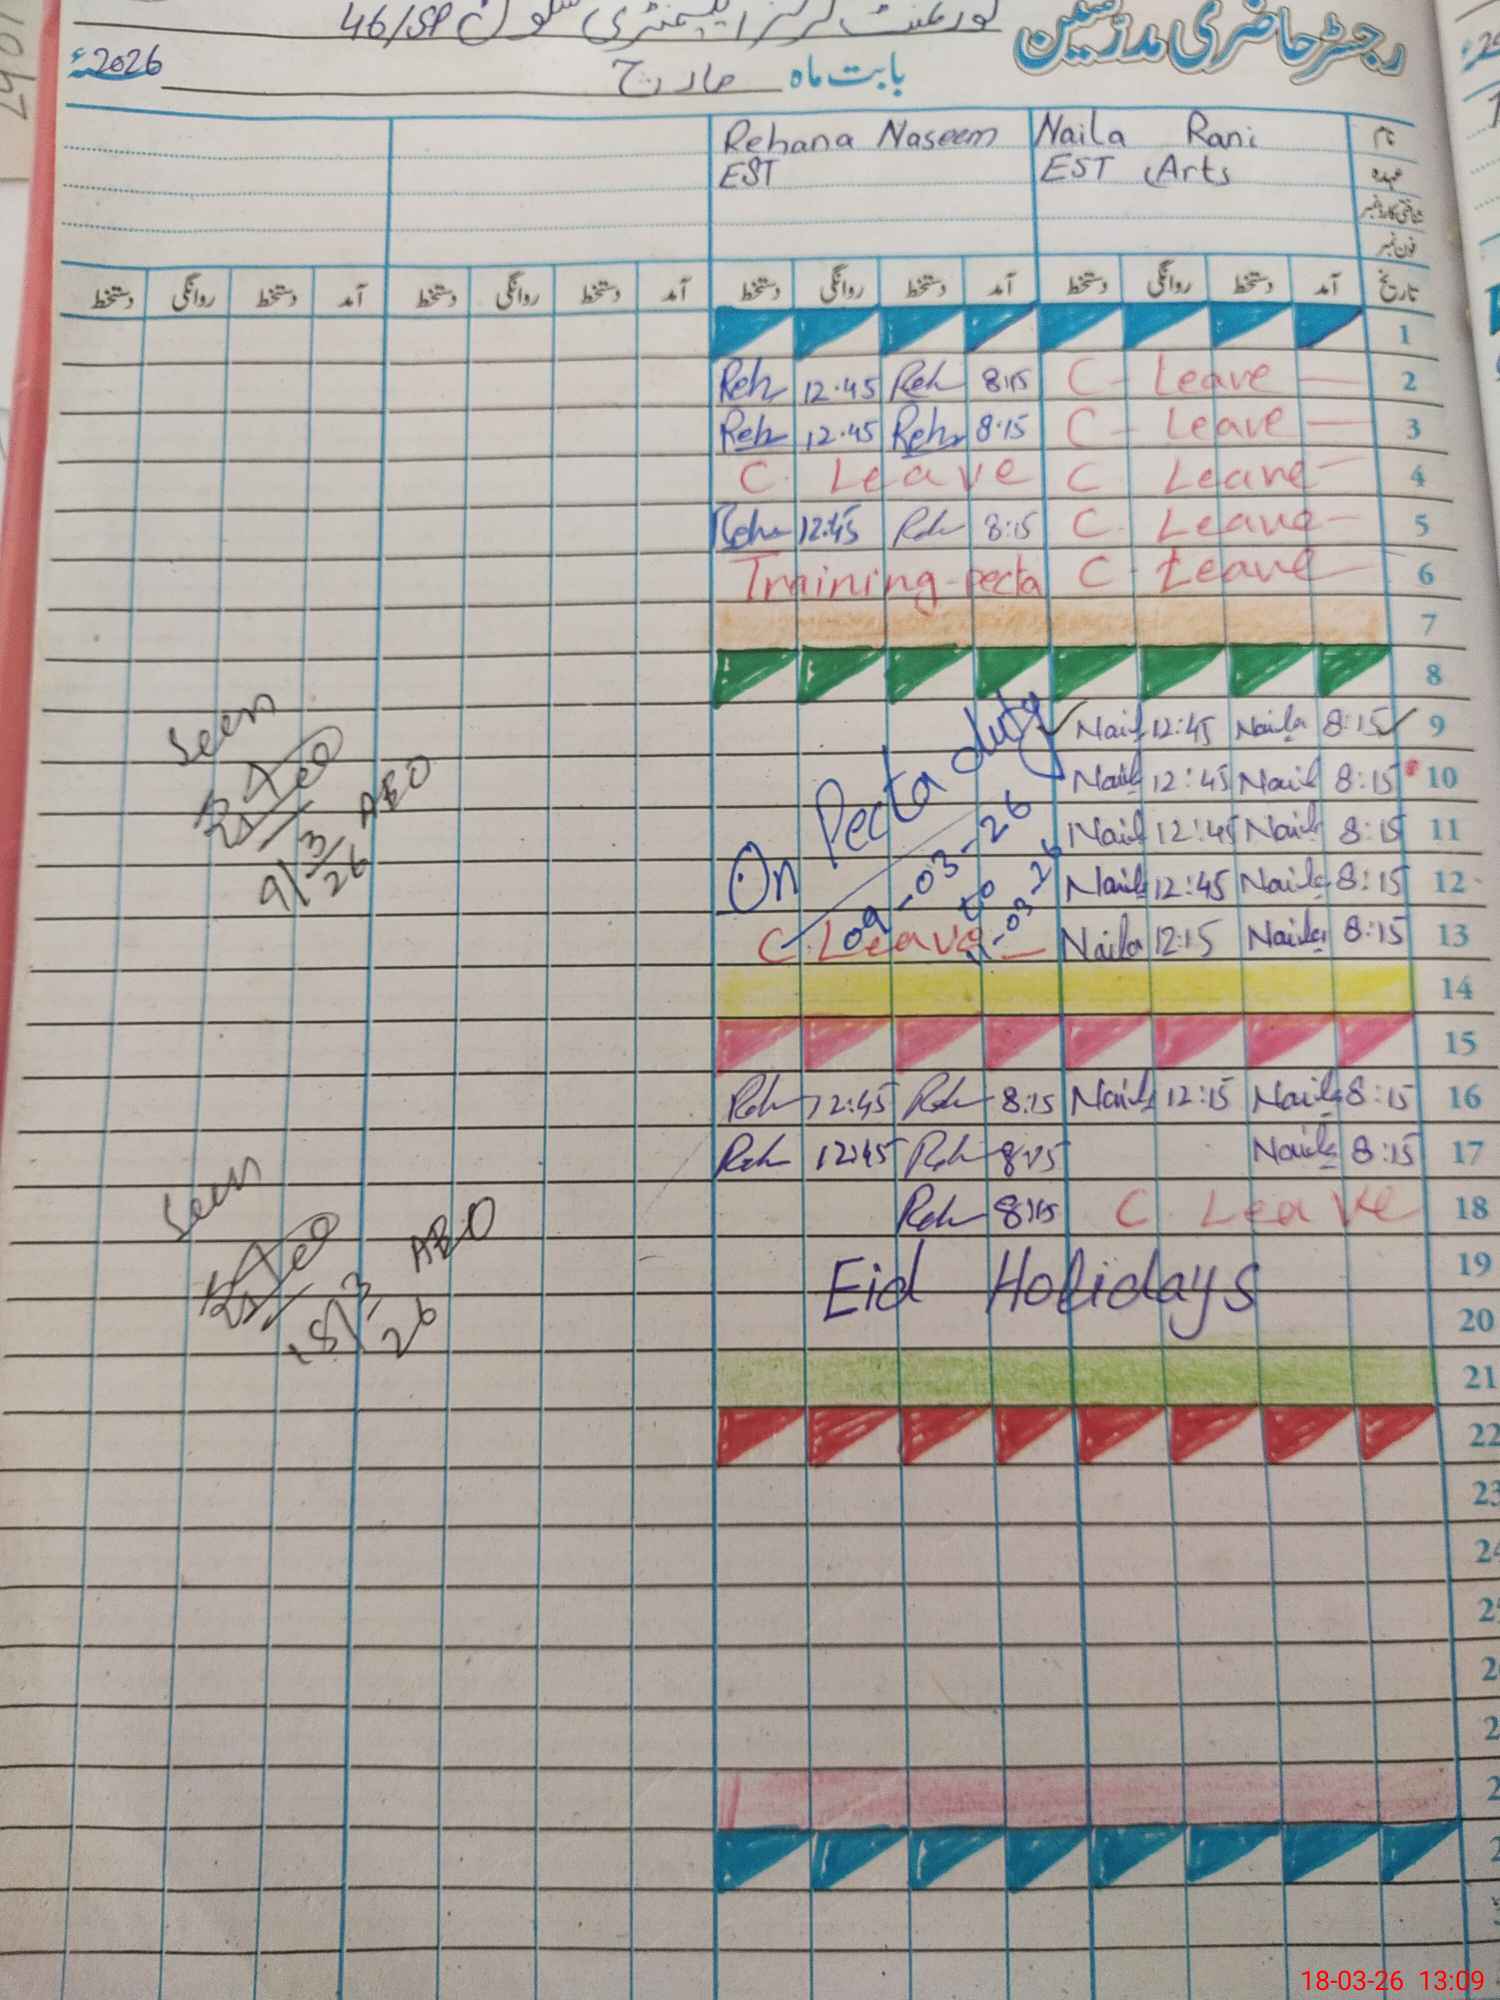 رجسٹر حاضری مدرسین
گورنمنٹ گرلز ایلیمنٹری سکول 46/SP
بابت ماہ مارچ
2026ء
نام Naila Rani Rehana Naseem
عہدہ EST Arts EST
شناختی کارڈ نمبر
فون نمبر
تاریخ آمد دستخط روانگی دستخط آمد دستخط روانگی دستخط آمد دستخط روانگی دستخط آمد دستخط روانگی دستخط
1
Reh 12.45 Reh 8:15 C - Leave — 2
Reh 12.45 Reh 8.15 C - Leave — 3
C. Leave C Leave - 4
Reh 12:45 Reh 8:15 C. Leave - 5
Training-pecta C - Leave — 6
7
8
Naila 12:45 Naila 8:15 9
Naila 12:45 Naila 8:15 10
Naila 12:45 Naila 8:15 11
Naila 12:45 Naila 8:15 12
On Pecta duty
09-03-26
to
11-03-26
C. Leave — Naila 12:15 Naila 8:15 13
14
15
Reh 12:45 Reh 8:15 Naila 12:15 Naila 8:15 16
Reh 12:45 Reh 8:15 Naila 8:15 17
Reh 8:15 C. Leave 18
Eid Holidays 19
20
21
22
23
Seen
AEO
9/3/26
Seen
AEO
18/3/26
18-03-26 13:09